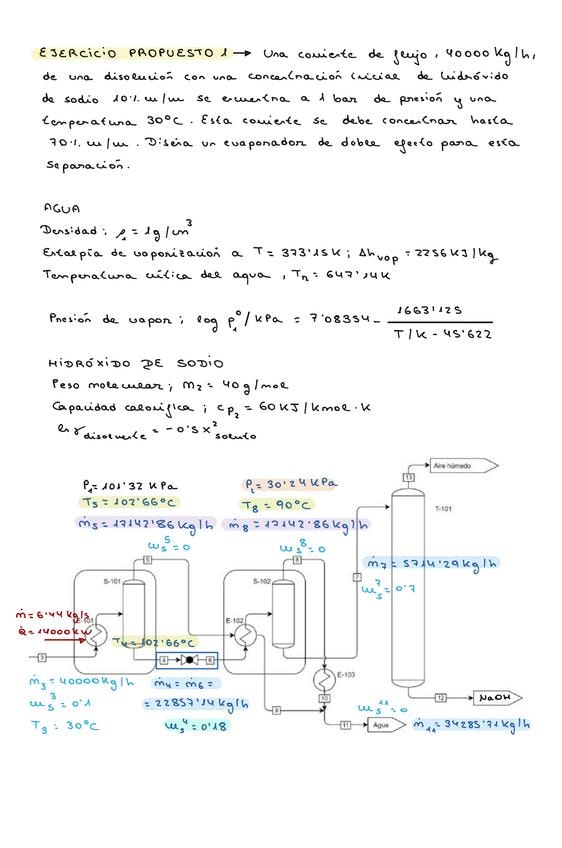 EJERCICIO PROPUESTO 1 → Una corriente de flujo, 40000 Kg/h,
de una disolución con una concentración inicial de hidróxido
de sodio 10% m/m se encuentra a 1 bar de presión y una
temperatura 30°C. Esta corriente se debe concentrar hasta
70% m/m. Diseña un evaporador de doble efecto para esta
separación.
AGUA
Densidad: ρ₁ = 1g/cm³
Entalpía de vaporización a T = 373'15K; Δhvap = 2256KJ/Kg
Temperatura crítica del agua, Tr = 647'14K
Presión de vapor; log p₁⁰/kPa = 7'08354 - 1663'125 / T/K - 45'622
HIDRÓXIDO DE SODIO
Peso molecular; M₂ = 40g/mol
Capacidad calorífica; cp₂ = 60KJ/Kmol·K
ln γ disolvente = -0'5 x² soluto
Aire húmedo
13
P₁ = 101'32 KPa
P₂ = 30'24 KPa
T₅ = 102'66°C
T₈ = 90°C
T-101
ṁ₅ = 17142'86 Kg/h
ṁ₈ = 17142'86 Kg/h
ω₅⁵ = 0
ω₅⁸ = 0
ṁ₇ = 5714'29 Kg/h
5
8
S-101
S-102
7
ω₅⁷ = 0'7
ṁ = 6'44 Kg/s
E-101
E-102
Q̇ = 14000 KW
T₄ = 102'66°C
3
4
6
E-103
ṁ₃ = 40000 Kg/h
ṁ₄ = ṁ₆ =
10
12
NaOH
ω₅³ = 0'1
= 22857'14 Kg/h
9
ω₅¹¹ = 0
T₃ = 30°C
ω₅⁴ = 0'18
11
Agua
ṁ₁₁ = 34285'71 Kg/h